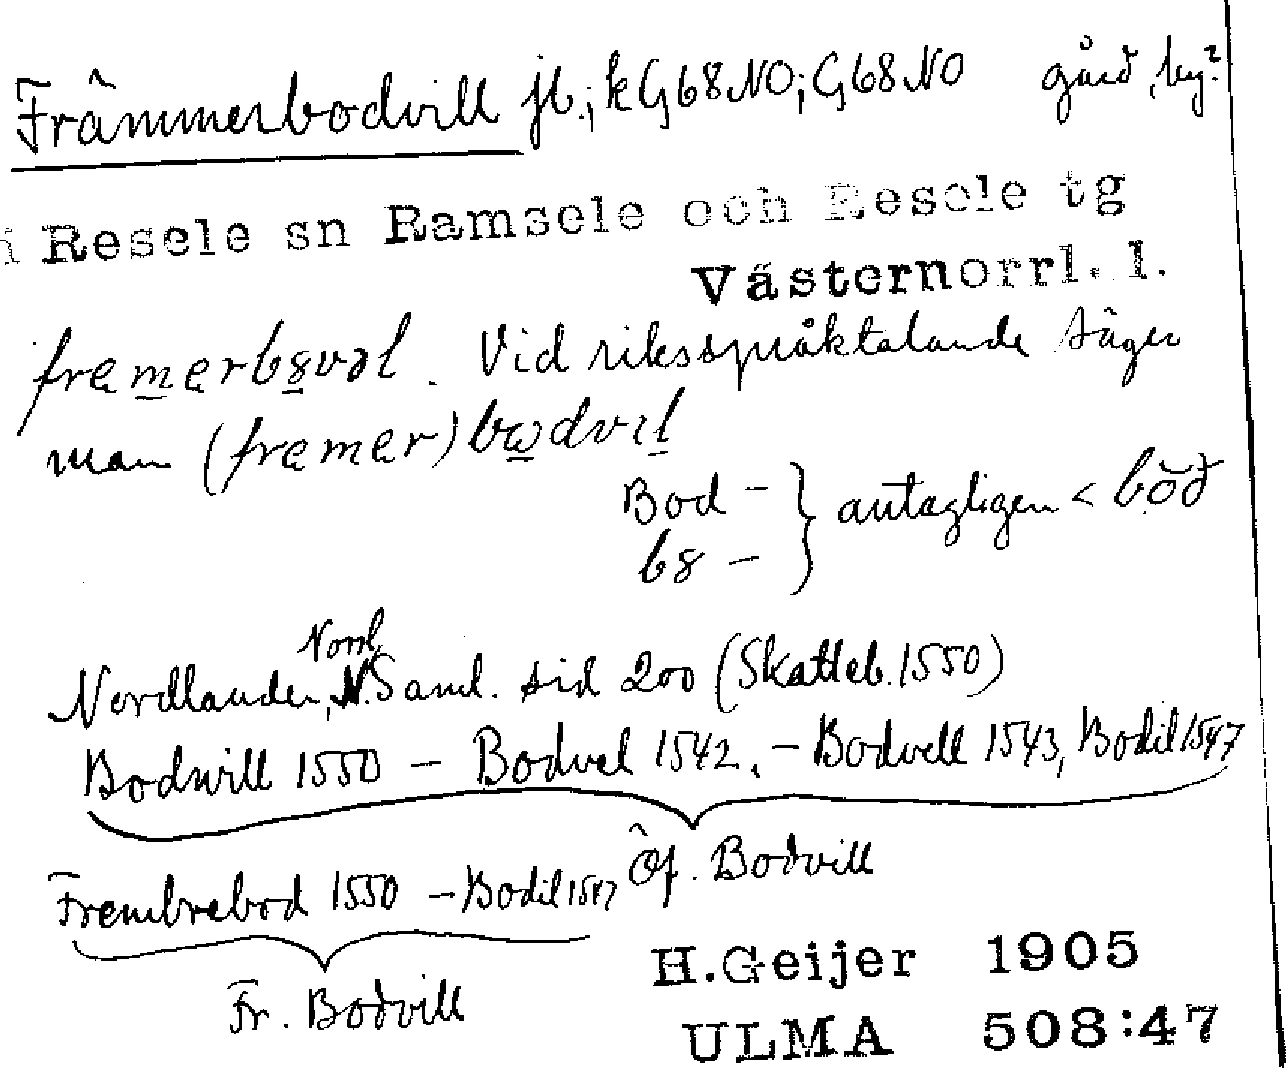 Främmerbodvill jb.; kG68NO; G68NO gård, by?
i Resele sn Ramsele och Resele tg
Västernorrl. l.
fremerb8vəl. Vid riksspråktalande säger
man (fremer)bωdvıl
Bod - } antagligen < bŏð
b8 -
Norrl.
Nordlander, N. Saml. sid 200 (Skatteb. 1550)
Bodwill 1550 - Bodvel 1542, - Bodvell 1543, Bodil 1547
Öf. Bodvill
Frembrebod 1550 - Bodil 1547
Fr. Bodvill
H.Geijer 1905
ULMA 508:47